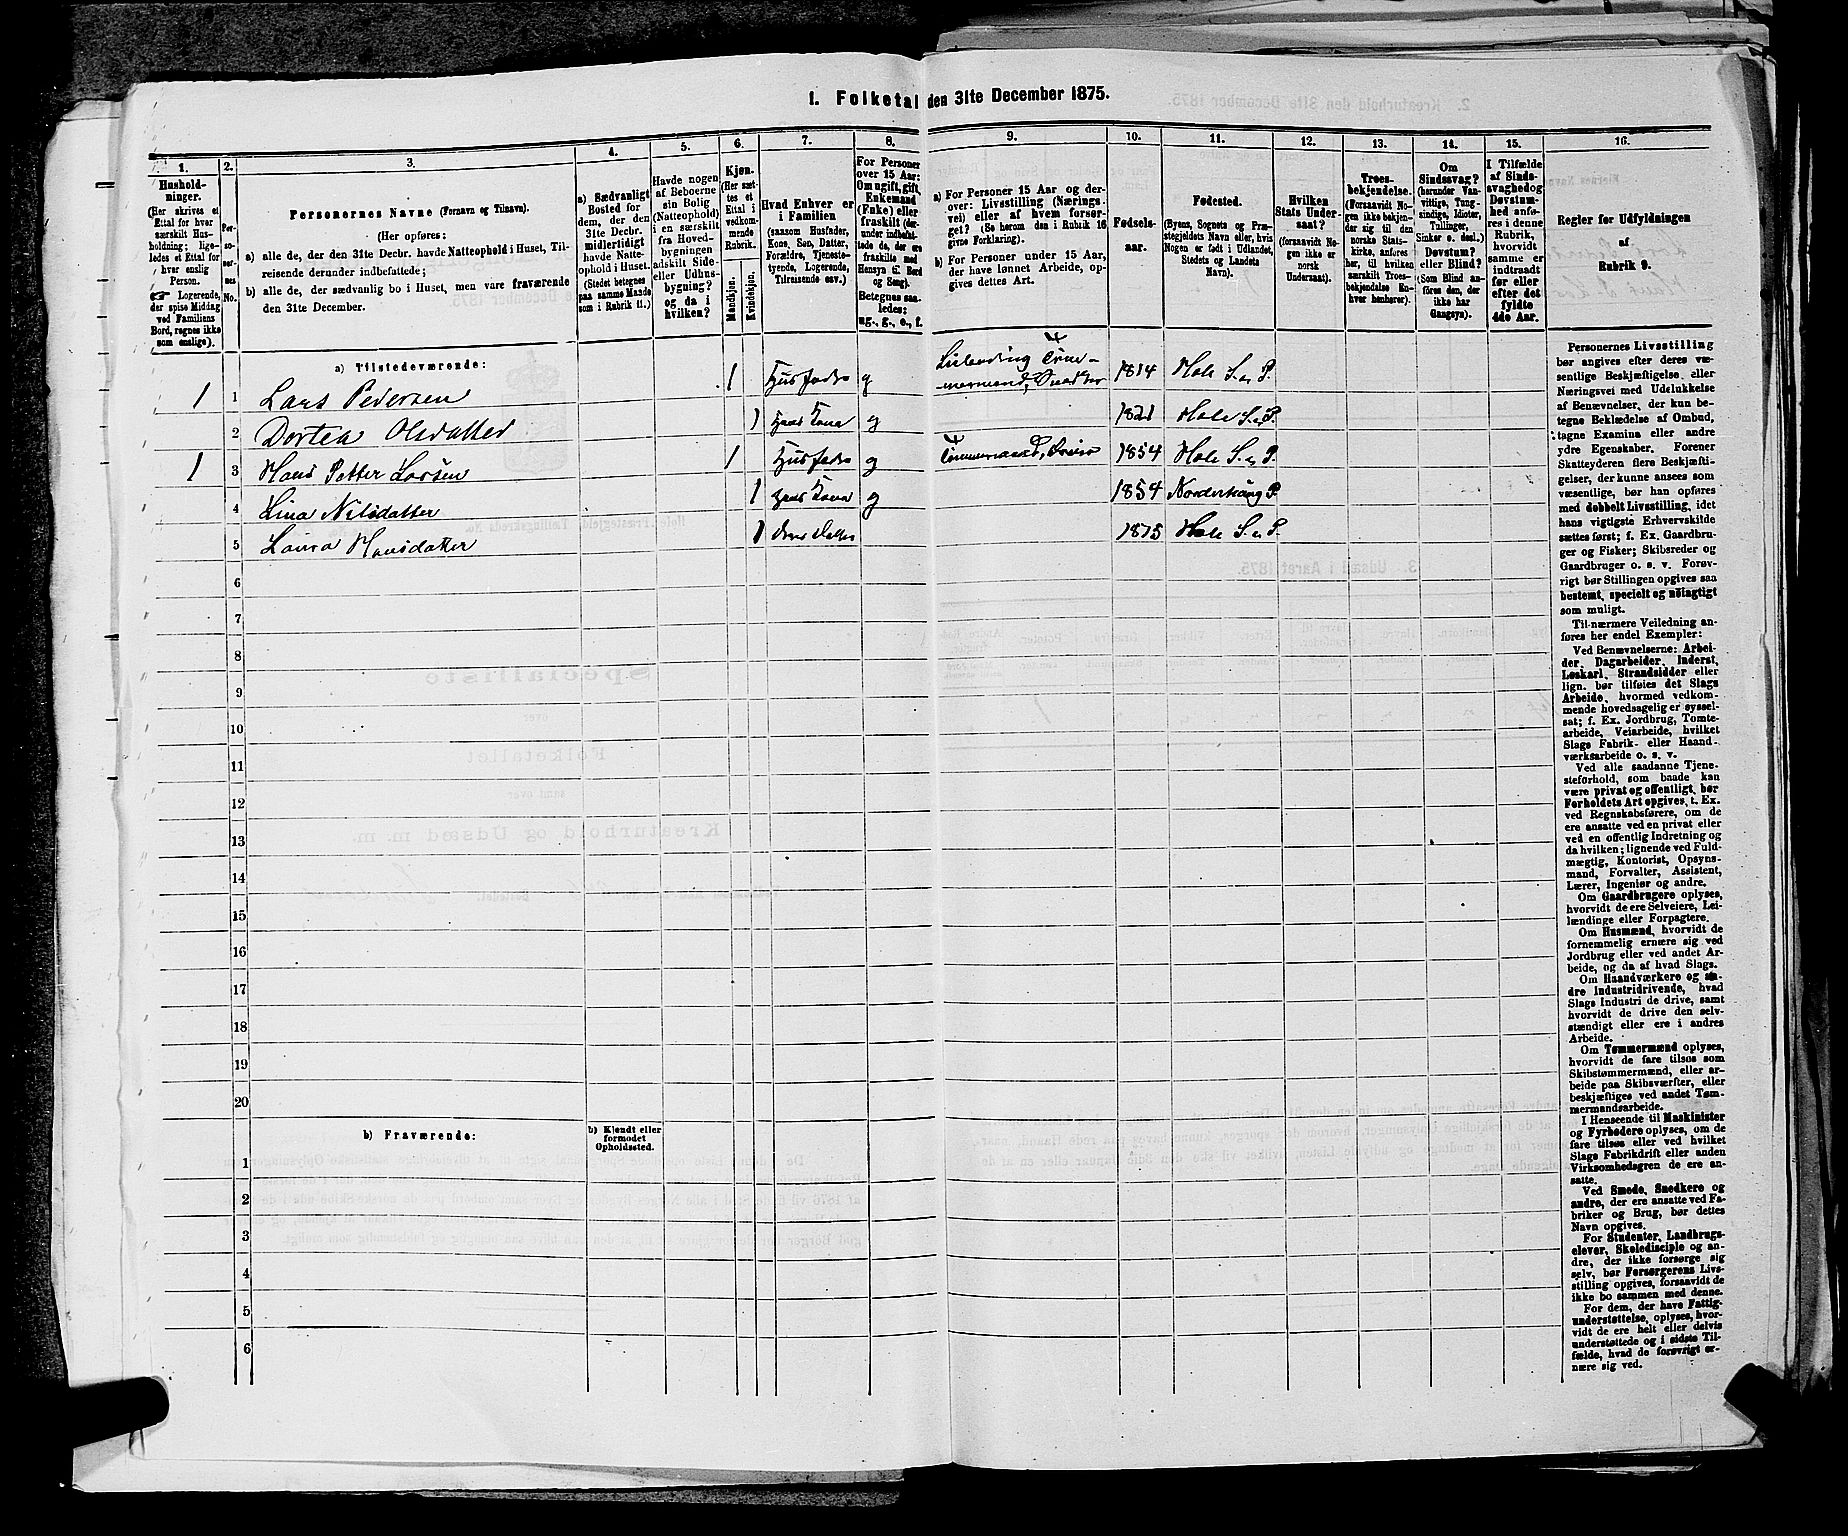 1. Folketal den 31te December 1875.
1.
Hushold-
ninger.
(Her skrives et
Ettal for hver
særskilt Hus-
holdning; lige-
ledes et Ettal for
hver enslig
Person.
☞ Logerende,
der spise Middag
ved Familiens
Bord, regnes ikke
som enslige).
2.
Per-
so-
ner-
nes
No.
3.
Personernes Navne (Fornavn og Tilnavn).
(Her opføres:
a) alle de, der den 31te Decbr. havde Natteophold i Huset, Til-
reisende derunder indbefattede;
b) alle de, der sædvanlig bo i Huset, men vare fraværende
den 31te December.
4.
a) Sædvanligt
Bosted for
dem, der den
31te Decbr.
midlertidigt
havde Natte-
ophold i Huset.
(Stedet betegnes
paa samme Maade
som i Rubrik 11.)
5.
Havde nogen
af Beboerne
sin Bolig
(Natteophold)
i en særskilt
fra Hoved-
bygningen
adskilt Side-
eller Udhus-
bygning?
og da i
hvilken?
6.
Kjøn.
(Her sæt-
tes et
Ettal i
vedkom-
mende
Rubrik.
Mandkjøn.
Kvindekjøn.
7.
Hvad Enhver er
i Familien
(saasom Husfader,
Kone, Søn, Datter,
Forældre, Tjeneste-
tyende, Logerende,
Tilreisende osv.)
8.
For Personer
over 15 Aar:
Om ugift, gift,
Enkemand
(Enke) eller
fraskilt (der-
under indbefat-
tede de, der ere
fraskilte med
Hensyn til Bord
og Seng).
Betegnes saa-
ledes:
ug., g., e., f.
9.
a) For Personer 15 Aar og der-
over: Livsstilling (Nærings-
vei) eller af hvem forsør-
get? (Se herom den i Rubrik 16
givne Forklaring).
b) For Personer under 15 Aar,
der have lønnet Arbeide, op-
gives dettes Art.
10.
Fødsels-
aar.
11.
Fødested.
(Byens, Sognets og Præ-
stegjeldets Navn eller, hvis
Nogen er født i Udlandet,
Stedets og Landets
Navn).
12.
Hvilken
Stats Under-
saat?
(forsaavidt No-
gen ikke er
norsk
Undersaat).
13.
Troes-
bekjendelse.
(Forsaavidt No-
gen ikke bekjen-
der sig til den
norske Stats-
kirke, anføres
her, til hvilken
særskilt Troes-
bekjendelse En-
hver henhører).
14.
Om
Sindssvag?
(herunder Van-
vittige, Tung-
sindige, Idioter,
Tullinger,
Sinker o. desl.)
Døvstum?
eller Blind?
(Som Blind an-
føres den, der
ikke har
Gangsyn).
15.
I Tilfælde
af Sinds-
svaghed og
Døvstum-
hed anfø-
res i denne
Rubrik,
hvorvidt
samme er
indtraadt
før eller
efter det
fyldte
4de Aar.
16.
Regler for Udfyldningen
af
Rubrik 9.
a) Tilstedeværende:
1 1 Lars Pedersen 1 Husfader g Leilending Tøm-
mermand, Snedker 1814 Hole S. & P.
2 Dortea Olsdatter 1 hans Kona g 1821 Hole S. & P.
1 3 Hans Petter Larsen 1 Husfader g Tømmermand 1854 Hole S. & P.
4 Lina Nilsdatter 1 hans Kona g 1854 Norderhaug P.
5 Laura Hansdatter 1 deres Datter 1875 Hole S. & P.
6
7
8
9
10
11
12
13
14
15
16
17
18
19
20
b) Fraværende:
b) Kjendt eller
formodet
Opholdssted.
1
2
3
4
5
6
Personernes Livsstilling
bør angives efter deres væ-
sentlige Beskjæftigelse eller
Næringsvei med Udelukkelse
af Benævnelser, der kun be-
tegne Beklædelse af Ombud,
tagne Examina eller andre
ydre Egenskaber. Forener
Skatteyderen flere Beskjæfti-
gelser, der kunne ansees som
væsentlige, bør han opføres
med dobbelt Livsstilling, idet
hans vigtigste Erhvervskilde
sættes først; f. Ex. Gaardbru-
ger og Fisker; Skibsreder og
Gaardbruger o. s. v. Forøv-
rigt bør Stillingen opgives saa
bestemt, specielt og nøiagtigt
som muligt.
Til nærmere Veiledning an-
føres her endel Exempler:
Ved Benævnelserne: Arbei-
der, Dagarbeider, Inderst,
Løskarl, Strandsidder eller
lign. bør tilføies det Slags
Arbeide, hvormed vedkom-
mende hovedsagelig er syssel-
sat; f. Ex. Jordbrug, Tomte-
arbeide, Veiarbeide, hvilket
Slags Fabrik- eller Haand-
værksarbeide o. s. v.
Ved alle saadanne Tjene-
steforhold, som baade kan
være privat og offentligt, bør
Forholdets Art opgives, t. Ex.
ved Regnskabsførere, om de
ere ansatte ved en privat eller
ved en offentlig Indretning og
da hvilken; lignende ved Fuld-
mægtig, Kontorist, Opsyns-
mand, Forvalter, Assistent,
Lærer, Ingeniør og andre.
Om Gaardbrugere oplyses,
hvorvidt de ere Selveiere, Lei-
lændinge eller Forpagtere.
Om Husmænd, hvorvidt de
fornemmelig ernære sig ved
Jordbrug eller ved andet Ar-
beide, og da af hvad Slags.
Om Haandværkere og an-
dre Industridrivende, hvad
Slags Industri de drive, samt
hvorvidt de drive den selv-
stændigt eller ere i andres
Arbeide.
Om Tømmermænd oplyses,
hvorvidt de fare tilsøs som
Skibstømmermænd, eller ar-
beide paa Skibsværfter, eller
beskjæftiges ved andet Tøm-
mermandsarbeide.
I Henseende til Maskinister
og Fyrbødere oplyses, om de
fare tilsøs eller ved hvilket
Slags Fabrikdrift eller anden
Virksomhedsgren de ere an-
satte.
Ved Smede, Snedkere og
andre, der ere ansatte ved Fa-
briker og Brug, bør dettes
Navn opgives.
For Studenter, Landbrugs-
elever, Skoledisciple og an-
dre, der ikke forsørge sig
selv, bør Forsørgerens Livs-
stilling opgives, forsaavidt de
ikke bo sammen med denne.
For dem, der have Fattig-
understøttelse, oplyses, hvor-
vidt de ere helt eller delvis
understøttede og i sidste Til-
fælde, hvad de forøvrigt er-
nære sig ved.